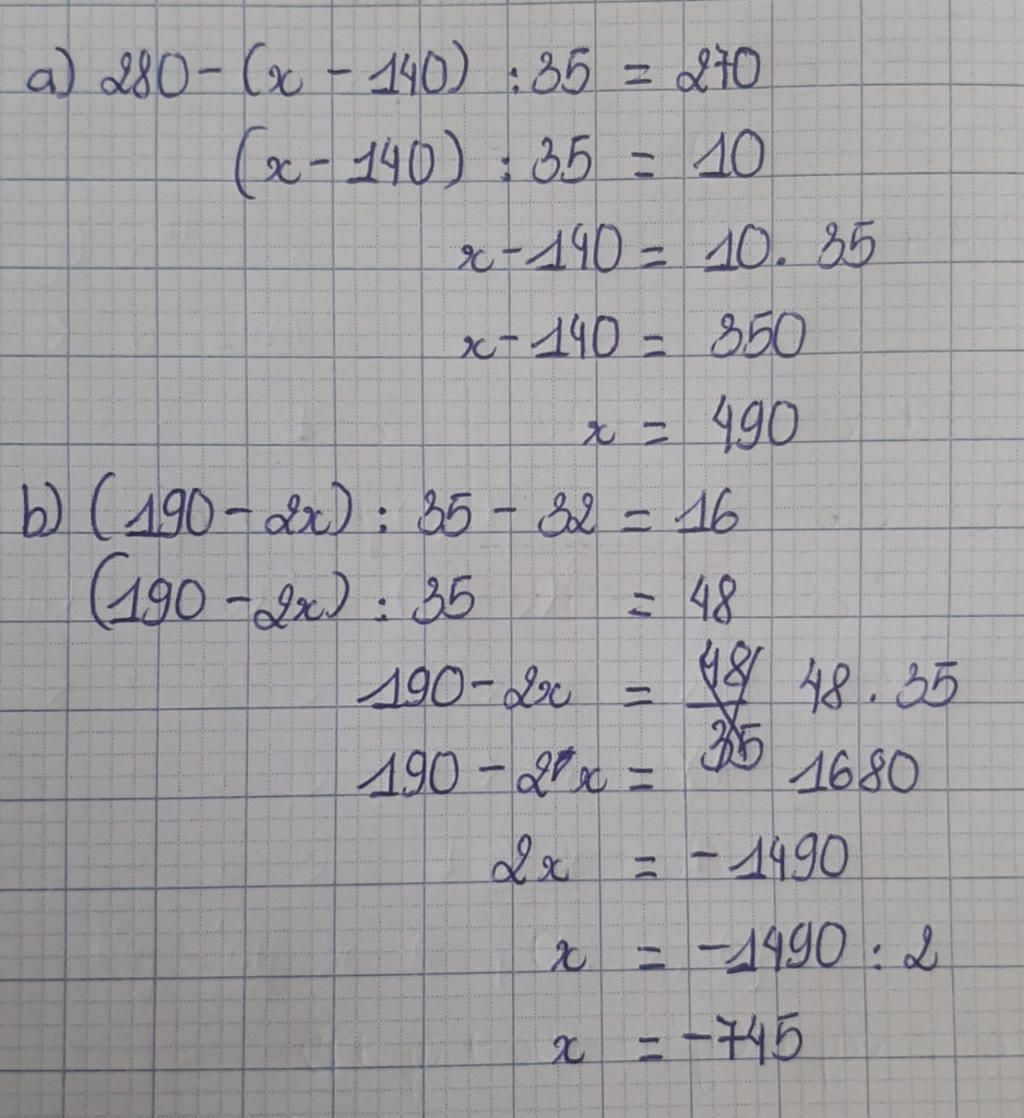 a) 280 - (x - 140) : 35 = 270
(x - 140) : 35 = 10
x - 140 = 10 . 35
x - 140 = 350
x = 490
b) (190 - 2x) : 35 - 32 = 16
(190 - 2x) : 35 = 48
190 - 2x = 48/35 48 . 35
190 - 2x = 1680
2x = -1490
x = -1490 : 2
x = -745